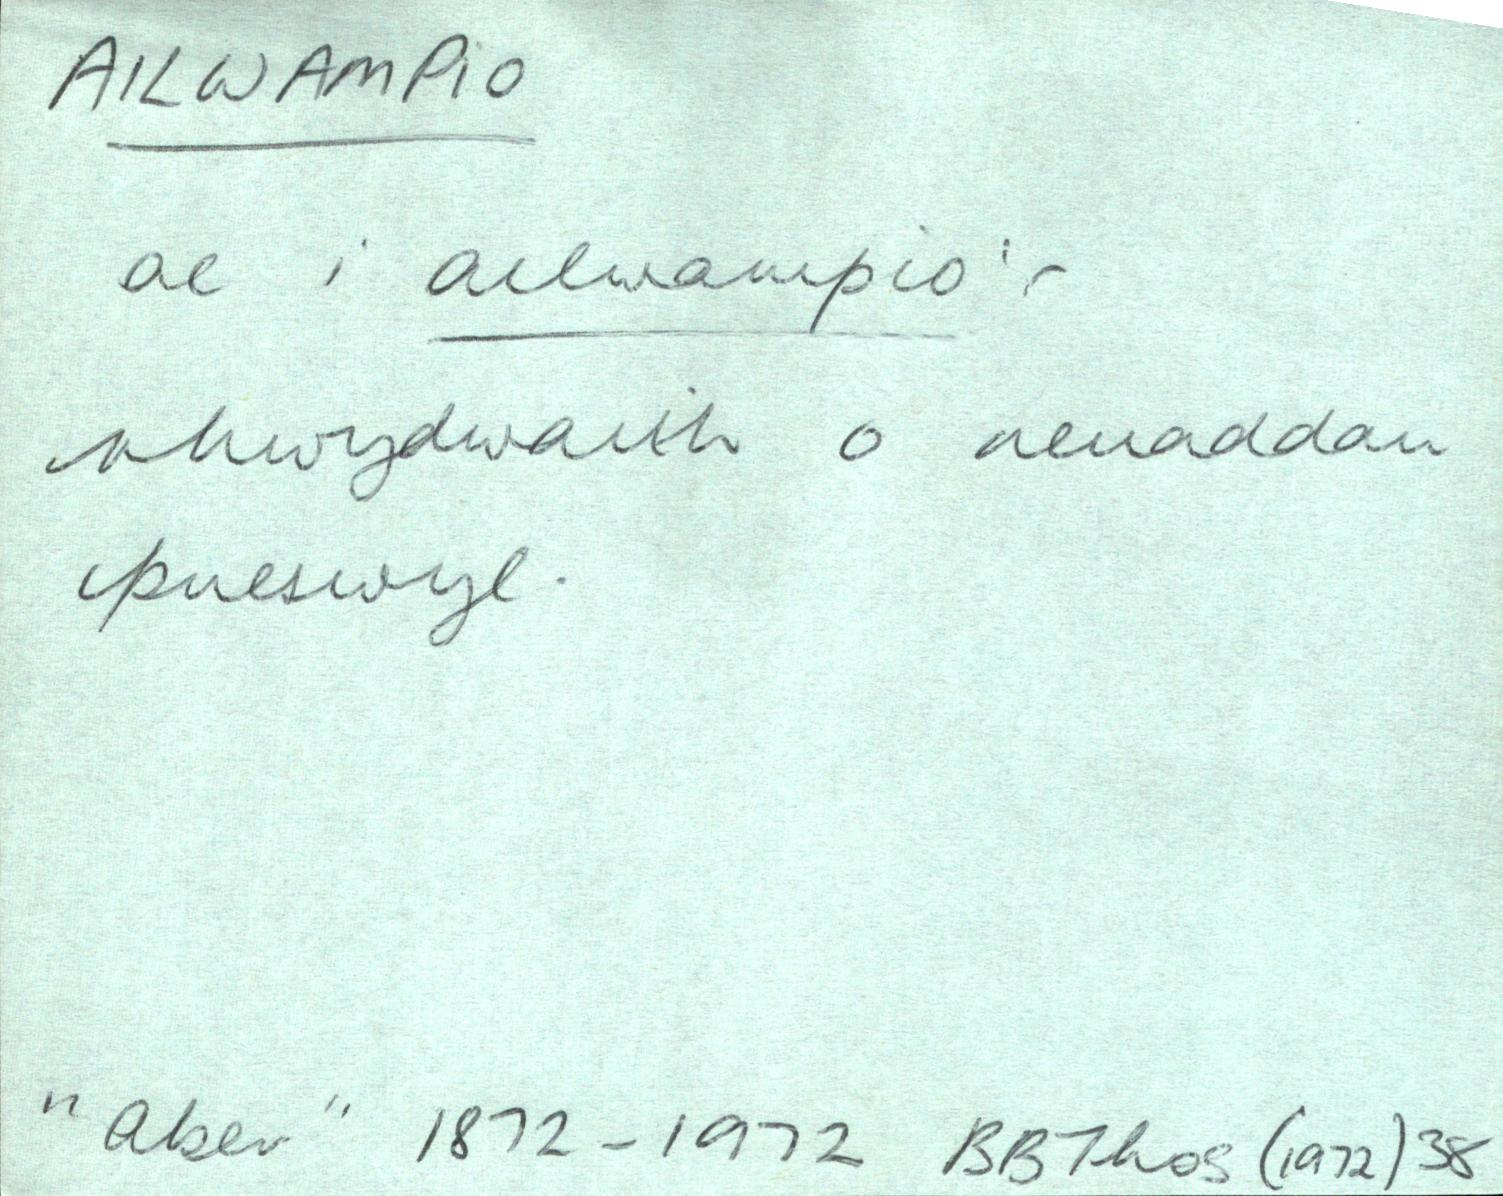 AILWAMPIO
ac i ailwampio'r
rhwydwaith o neuaddau
preswyl.
"Aber" 1872-1972 BBThos (1972) 38